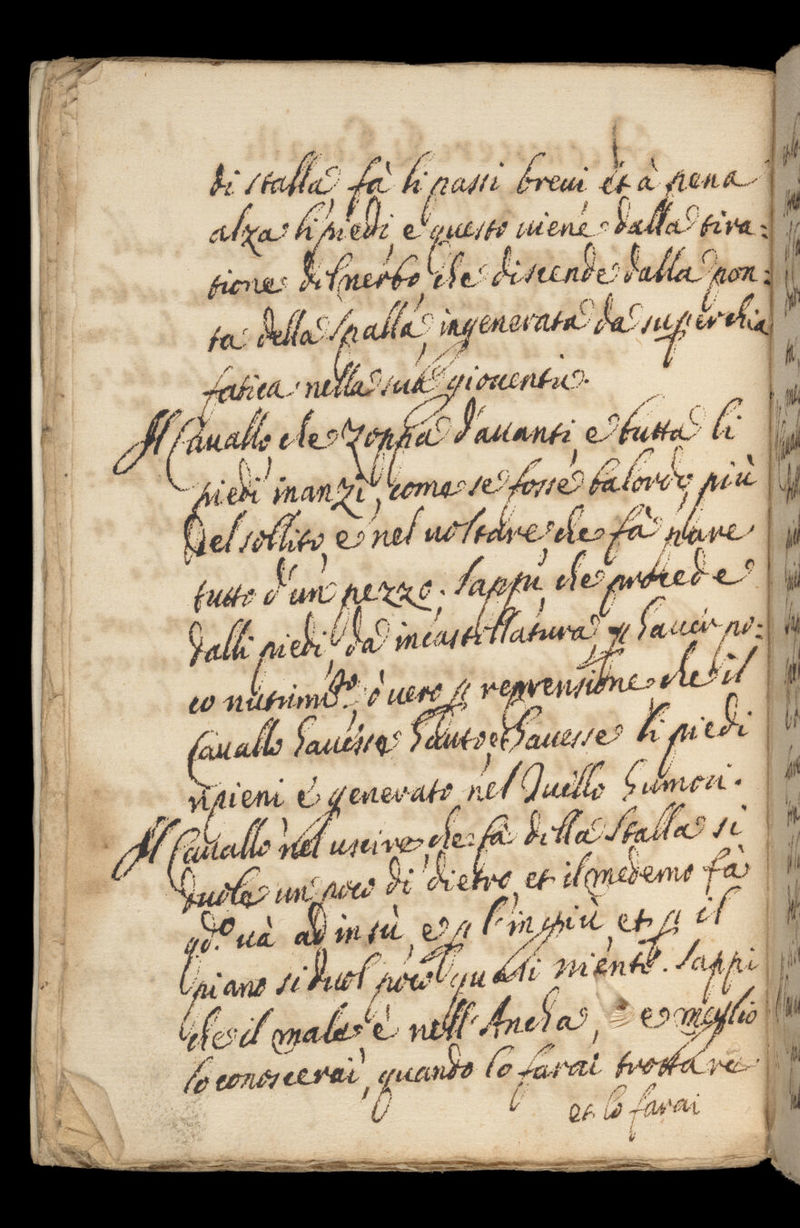 di stalla, fà li passi breui et à pena
alza li piedi, e questo uiene dalla tira=
tione dil nerbo, che discende dalla pon=
ta della spalla, ingenerata da superchia
fatica nella sua giouentù.
Il Cauallo, che zoppa d'auanti, e butta li
piedi inanzi, come se fosse balordo, più
del sollito, e nel uoltare, che fà, pare
tutto d'un pezzo. Sappij, che procede
dalli piedi, da incastellatura, p hauer po=
co nutrim.to, ò uero p reprensione, che il
Cauallo hauesse hauto, e hauesse li piedi
ripieni, e generato nel Quillo humori.
Il Cauallo nel uscire, che fà della Stalla si
duole un poco di dietro, et il medemo fà
qd.o uà ad in sù, e p l'ingiù et p il
piano si duol poco, quasi niente. Sappi
che il male è nell'Ancha, e meglio
lo conoscerai, quando lo farai trottare
et lo farai